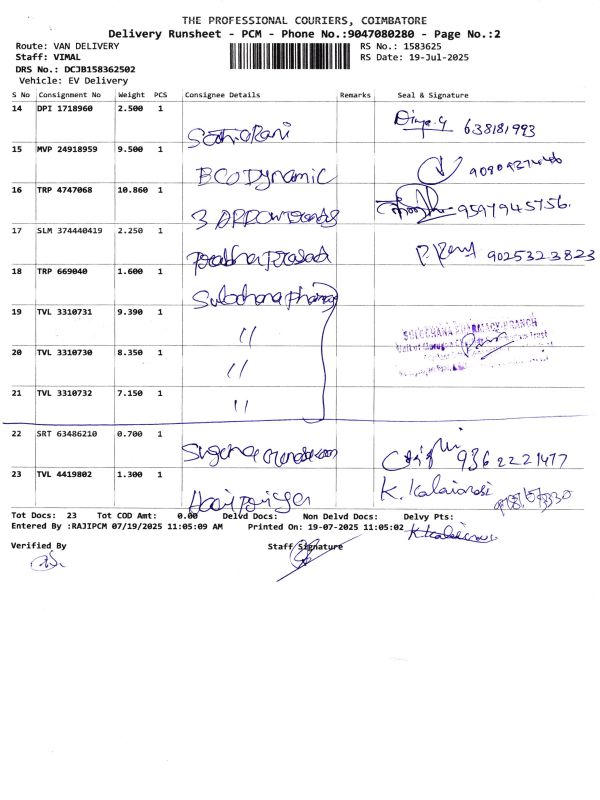 THE PROFESSIONAL COURIERS, COIMBATORE
Delivery Runsheet - PCM - Phone No.:9047080280 - Page No.:2
Route: VAN DELIVERY RS No.: 1583625
Staff: VIMAL RS Date: 19-Jul-2025
DRS No.: DCJB158362502
Vehicle: EV Delivery
S No Consignment No Weight PCS Consignee Details Remarks Seal & Signature
14 DPI 1718960 2.500 1 Divya.G 638181993
15 MVP 24918959 9.500 1 ECO Dynamic
16 TRP 4747068 10.860 1 3 ARROW 9597945756.
17 SLM 374440419 2.250 1 9025323823
18 TRP 669040 1.600 1 Sulochana
19 TVL 3310731 9.390 1 "
SULOCHANA PHARMACY-BRANCH
20 TVL 3310730 8.350 1 "
21 TVL 3310732 7.150 1 "
22 SRT 63486210 0.700 1 9362221477
23 TVL 4419802 1.300 1 Haripriya K. Kalaiarasi
Tot Docs: 23 Tot COD Amt: 0.00 Delvd Docs: Non Delvd Docs: Delvy Pts:
Entered By :RAJIPCM 07/19/2025 11:05:09 AM Printed On: 19-07-2025 11:05:02
Verified By Staff Signature